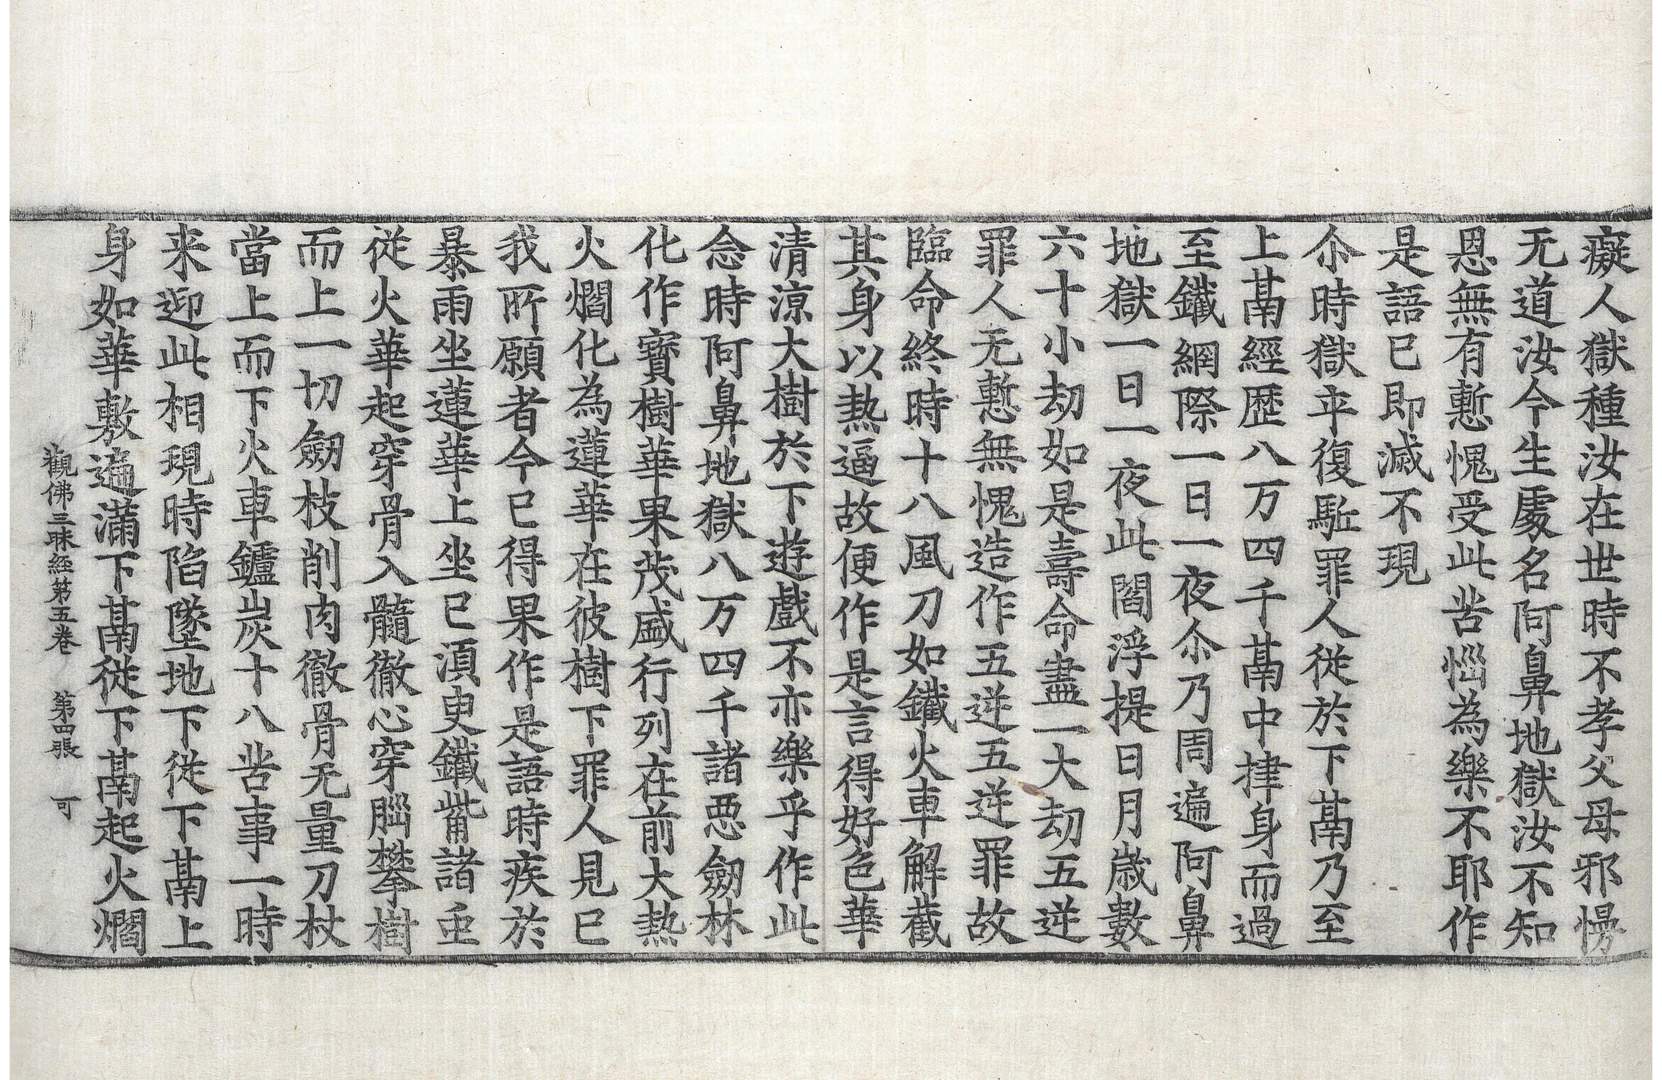 癡人獄種汝在世時不孝父母邪慢
无道汝今生處名阿鼻地獄汝不知
恩無有慙愧受此苦惱為樂不耶作
是語已即滅不現
尒時獄卒復駈罪人從於下鬲乃至
上鬲經歷八万四千鬲中揵身而過
至鐵網際一日一夜尒乃周遍阿鼻
地獄一日一夜此閻浮提日月歳數
六十小劫如是壽命盡一大劫五逆
罪人无慙無愧造作五逆五逆罪故
臨命終時十八風刀如鐵火車解截
其身以熱逼故便作是言得好色華
清涼大樹於下遊戲不亦樂乎作此
念時阿鼻地獄八万四千諸惡劒林
化作寶樹華果茂盛行列在前大熱
火爓化為蓮華在彼樹下罪人見已
我所願者今已得果作是語時疾於
暴雨坐蓮華上坐已湏臾鐵觜諸虫
從火華起穿骨入髓徹心穿腦攀樹
而上一切劒枝削肉徹骨无量刀杖
當上而下火車鑪炭十八苦事一時
来迎此相現時陷墜地下從下鬲上
身如華敷遍滿下鬲從下鬲起火爓
觀佛三昧經第五卷 第四張 可